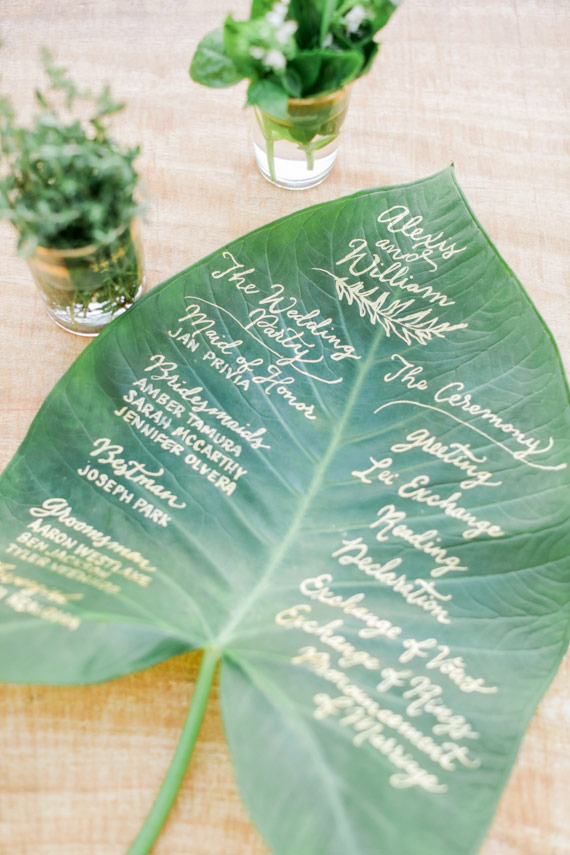 Alexis
and
William
The Wedding
Party
Maid of Honor
JAN PRIVIA
Bridesmaids
AMBER TAMURA
SARAH MCCARTHY
JENNIFER OLVERA
Bestman
JOSEPH PARK
Groomsmen
AARON WESTLAKE
BEN JACKSON
TYLER
The Ceremony
Greeting
Lei Exchange
Reading
Declaration
Exchange of Vows
Exchange of Rings
Pronouncement
of Marriage